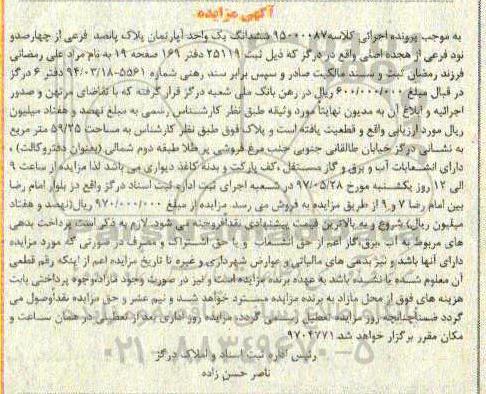 آگهی مزایده
به موجب پرونده اجرائی کلاسه ۹۵۰۰۰۰۸۷ ششدانگ یک واحد آپارتمان پلاک پانصد فرعی از چهارصدو
نود فرعی از هجده اصلی واقع در درگز که ذیل ثبت ۲۵۱۱۹ دفتر ۱۶۹ صفحه ۱۹ به نام مراد علی رمضانی
فرزند رمضان ثبت و سند مالکیت صادر و سپس برابر سند رهنی شماره ۵۵۶۱-۹۴/۰۳/۱۸ دفتر ۶ درگز
در قبال مبلغ ۶۰۰/۰۰۰/۰۰۰ ریال در رهن بانک ملی شعبه درگز قرار گرفته که با تقاضای مرتهن و صدور
اجرائیه و ابلاغ آن به مدیون نهایتا مورد وثیقه طبق نظر کارشناس رسمی به مبلغ نهصد و هفتاد میلیون
ریال مورد ارزیابی واقع و قطعیت یافته است و پلاک فوق طبق نظر کارشناس به مساحت ۵۹/۲۵ متر مربع
به نشانی درگز خیابان طالقانی جنوبی جنب مرغ فروشی پر طلا طبقه دوم شمالی (بعنوان دفتروکالت) ،
دارای انشعابات آب و برق و گاز مستقل ،کف پارکت و بدنه کاغذ دیواری می باشد لذا مزایده از ساعت ۹
الی ۱۲ روز یکشنبه مورخ ۹۷/۰۵/۲۸ در شعبه اجرای ثبت اداره ثبت اسناد درگز واقع در بلوار امام رضا
بین امام رضا ۷ و ۹ از طریق مزایده به فروش می رسد. مزایده از مبلغ ۹۷۰/۰۰۰/۰۰۰ ریال(نهصد و هفتاد
میلیون ریال) شروع و به بالاترین قیمت پیشنهادی نقدافروخته می شود. لازم به ذکر است پرداخت بدهی
های مربوط به آب ،برق،گاز اعم از حق انشعاب و یا حق اشتراک و مصرف در صورتی که مورد مزایده
دارای آنها باشد و نیز بدهی های مالیاتی و عوارض شهرداری و غیره تا تاریخ مزایده اعم از اینکه رقم قطعی
آن معلوم شده یا نشده باشد به عهده برنده مزایده است و نیز در صورت وجود مازاد،وجوه پرداختی بابت
هزینه های فوق از محل مازاد به برنده مزایده مسترد خواهد شد و نیم عشر و حق مزایده نقداوصول می
گردد ضمناچنانچه روز مزایده تعطیل رسمی گردد، مزایده روز اداری بعد از تعطیلی در همان ساعت و
مکان مقرر برگزار خواهد شد ۹۷۰۴۷۷۱
رئیس اداره ثبت اسناد و املاک درگز
ناصر حسن زاده
۰۲۱-۸۸۳۴۹۶۷۰-۵